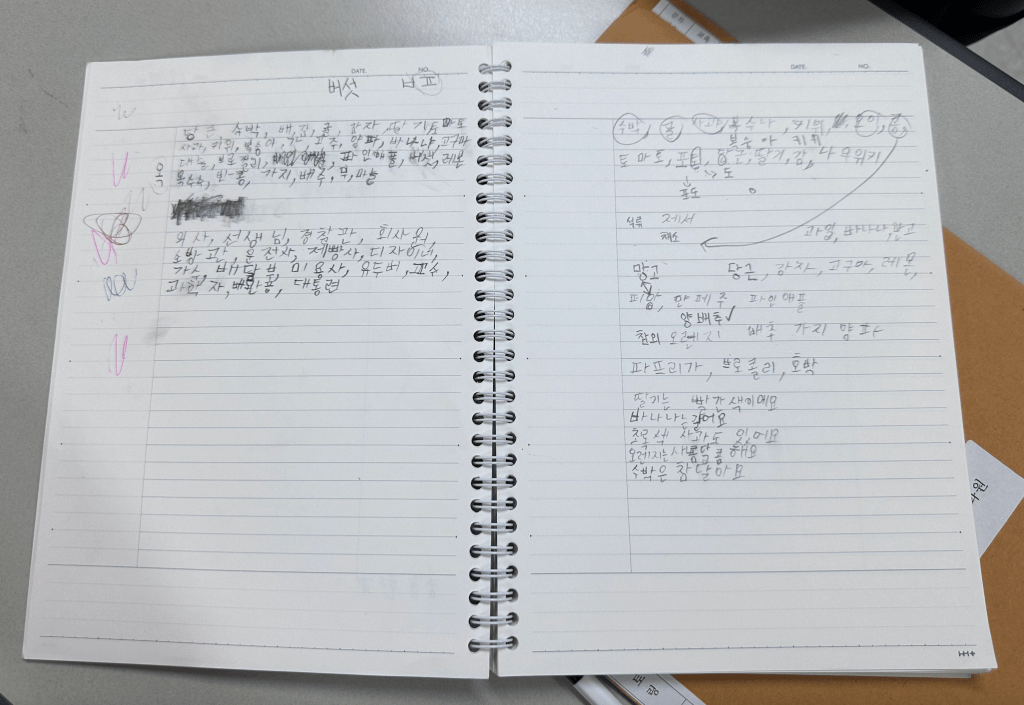 DATE. NO.
버섯
당근, 수박, 배, 감, 귤, 감자, 딸기, 토마토
사과, 키위, 복숭아, 고추, 양파, 바나나, 고구마
대늘, 브로콜리, 파인애플, 버섯, 레몬
옥
옥수수, 가지, 배추, 무, 마늘
의사, 선생님, 경찰관, 회사원,
소방관, 운전사, 제빵사, 디자이너,
가수, 배달부, 미용사, 유두버, 교수,
과학자, 배완풍, 대통령
DATE. NO.
수박, 복수나 키위
복숭아 키위
토마토, 포틷, 당근, 딸기, 감, 나
도
포도
제서
채소
과일, 바나나, 망고
망고 당근, 감자, 고구마, 레몬,
피망, 만페주 파인애플
양배추
참외 오렌지 배추 가지 양파
파프리가, 브로콜리, 호박
딸기는 빨간색이에요
바나나는 길어요
초록색 사과도 있어요
오렌지는 새콤달콤해요
수박은 참 달아요